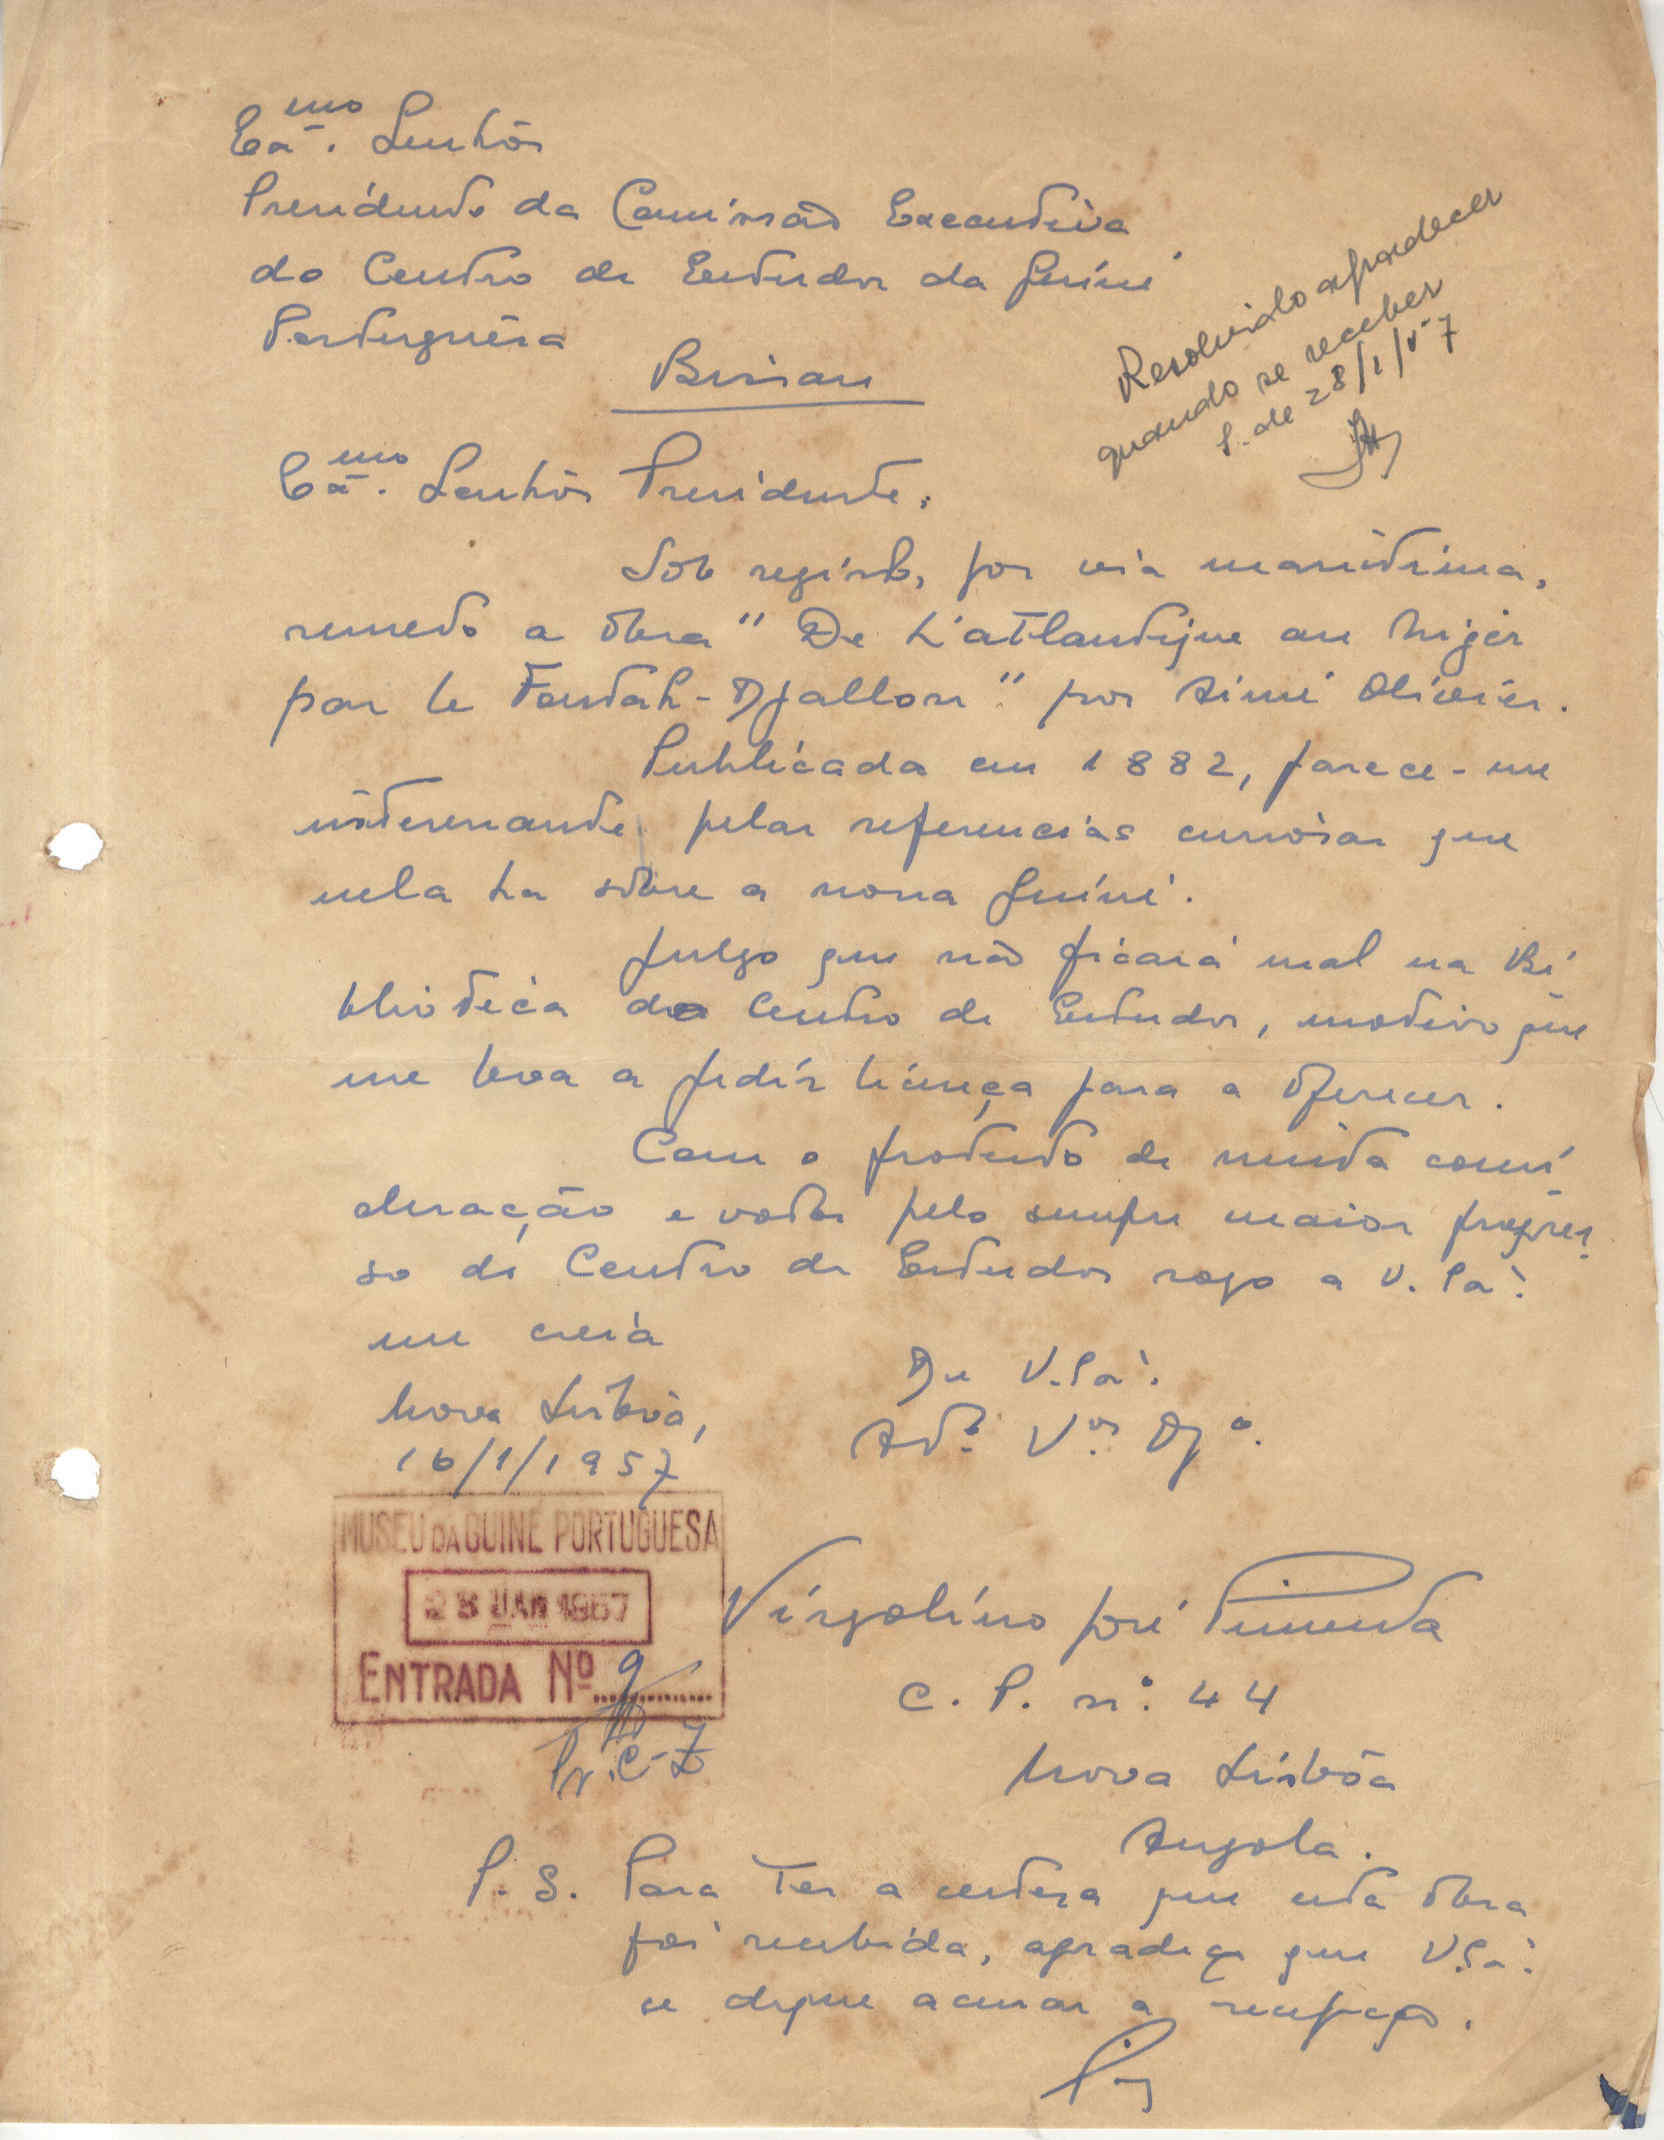 Exmo. Senhôr
Presidente da Comissão Executiva
do Centro de Estudos da Guiné
Portuguêsa
Bissau
Resolvido agradecer
quando se receber
S. de 28/1/57
Exmo. Senhôr Presidente,
Sob registo, por via maritima,
remeto a obra "De L'atlantique au Niger
par le Foutah-Djallon" por Aimé Olivier.
Publicada em 1882, parece-me
interessante pelas referencias curiosas que
nela ha sôbre a nossa Guiné.
Julgo que não ficará mal na Bi
blioteca do Centro de Estudos, motivo que
me leva a pedir licença para a oferecer.
Com o protesto de muita consi
deração e votos pelo sempre maior progres
so do Centro de Estudos rogo a V. Exa.
me creia
De V. Exa.
Nova Lisbôa,
Atº. Vor. Ogº.
16/1/1957
MUSEU DA GUINÉ PORTUGUESA
28 JAN 1957
ENTRADA Nº 9
Pr. C-7
Virgolino José Pimenta
C. P. nº. 44
Nova Lisbôa
Angola.
P. S. Para ter a certeza que esta obra
foi recebida, agradeço que V. Exa.
se digne acusar a recepção.